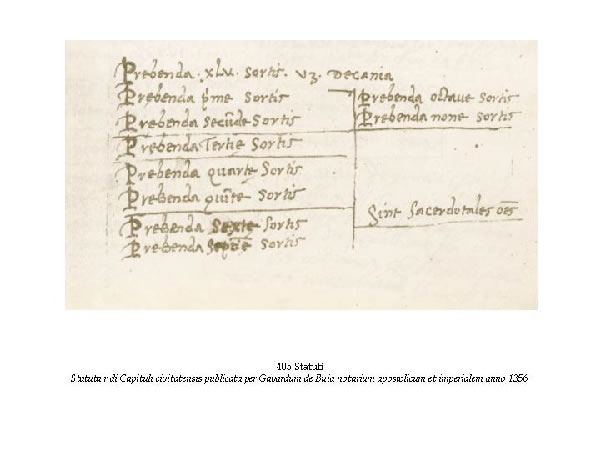 Prebenda · xlv · Sortis · vz · Decania
Prebenda p̄me Sortis
Prebenda Secūde Sortis
Prebenda Tertie Sortis
Prebenda quarte Sortis
Prebenda quīte Sortis
Prebenda Sexte Sortis
Prebenda Sortis
Prebenda octaue Sortis
Prebenda none Sortis
Sint Sacerdotales oēs
405 Statuti
Capituli civitatensis publicata per de notarium apostolicum et imperialem anno 1356